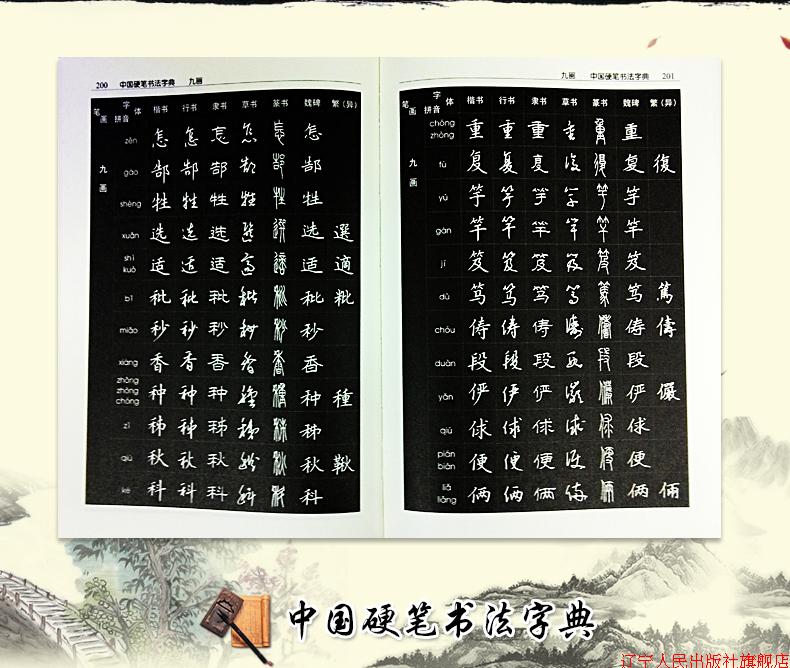 200 中国硬笔书法字典 九画
笔画 字体 拼音 楷书 行书 隶书 草书 篆书 魏碑 繁(异)
九画
zěn 怎 怎 怎 怎 怎 怎
gào 郜 郜 郜 郜 郜 郜
shēng 牲 牲 牲 牲 牲 牲
xuǎn 选 选 选 选 選 选 選
shì kuò 适 适 适 适 适 适 適
bǐ 秕 秕 秕 秕 秕 秕 粃
miǎo 秒 秒 秒 秒 秒 秒
xiāng 香 香 香 香 香 香
zhǒng zhòng chóng 种 种 种 种 種 种 種
zǐ 秭 秭 秭 秭 秭 秭
qiū 秋 秋 秋 秋 秋 秋 鞦
kē 科 科 科 科 科 科
九画 中国硬笔书法字典 201
笔画 字体 拼音 楷书 行书 隶书 草书 篆书 魏碑 繁(异)
九画
chóng zhòng 重 重 重 重 重 重
fù 复 复 复 复 復 复 復
yú 竽 竽 竽 竽 竽 竽
gān 竿 竿 竿 竿 竿 竿
jí 笈 笈 笈 笈 笈 笈
dǔ 笃 笃 笃 笃 篤 笃 篤
chóu 俦 俦 俦 俦 儔 俦 儔
duàn 段 段 段 段 段 段
yǎn 俨 俨 俨 俨 儼 俨 儼
qiú 俅 俅 俅 俅 俅 俅
pián biàn 便 便 便 便 便 便
liǎ liǎng 俩 俩 俩 俩 俩 俩 倆
中国硬笔书法字典
辽宁人民出版社旗舰店